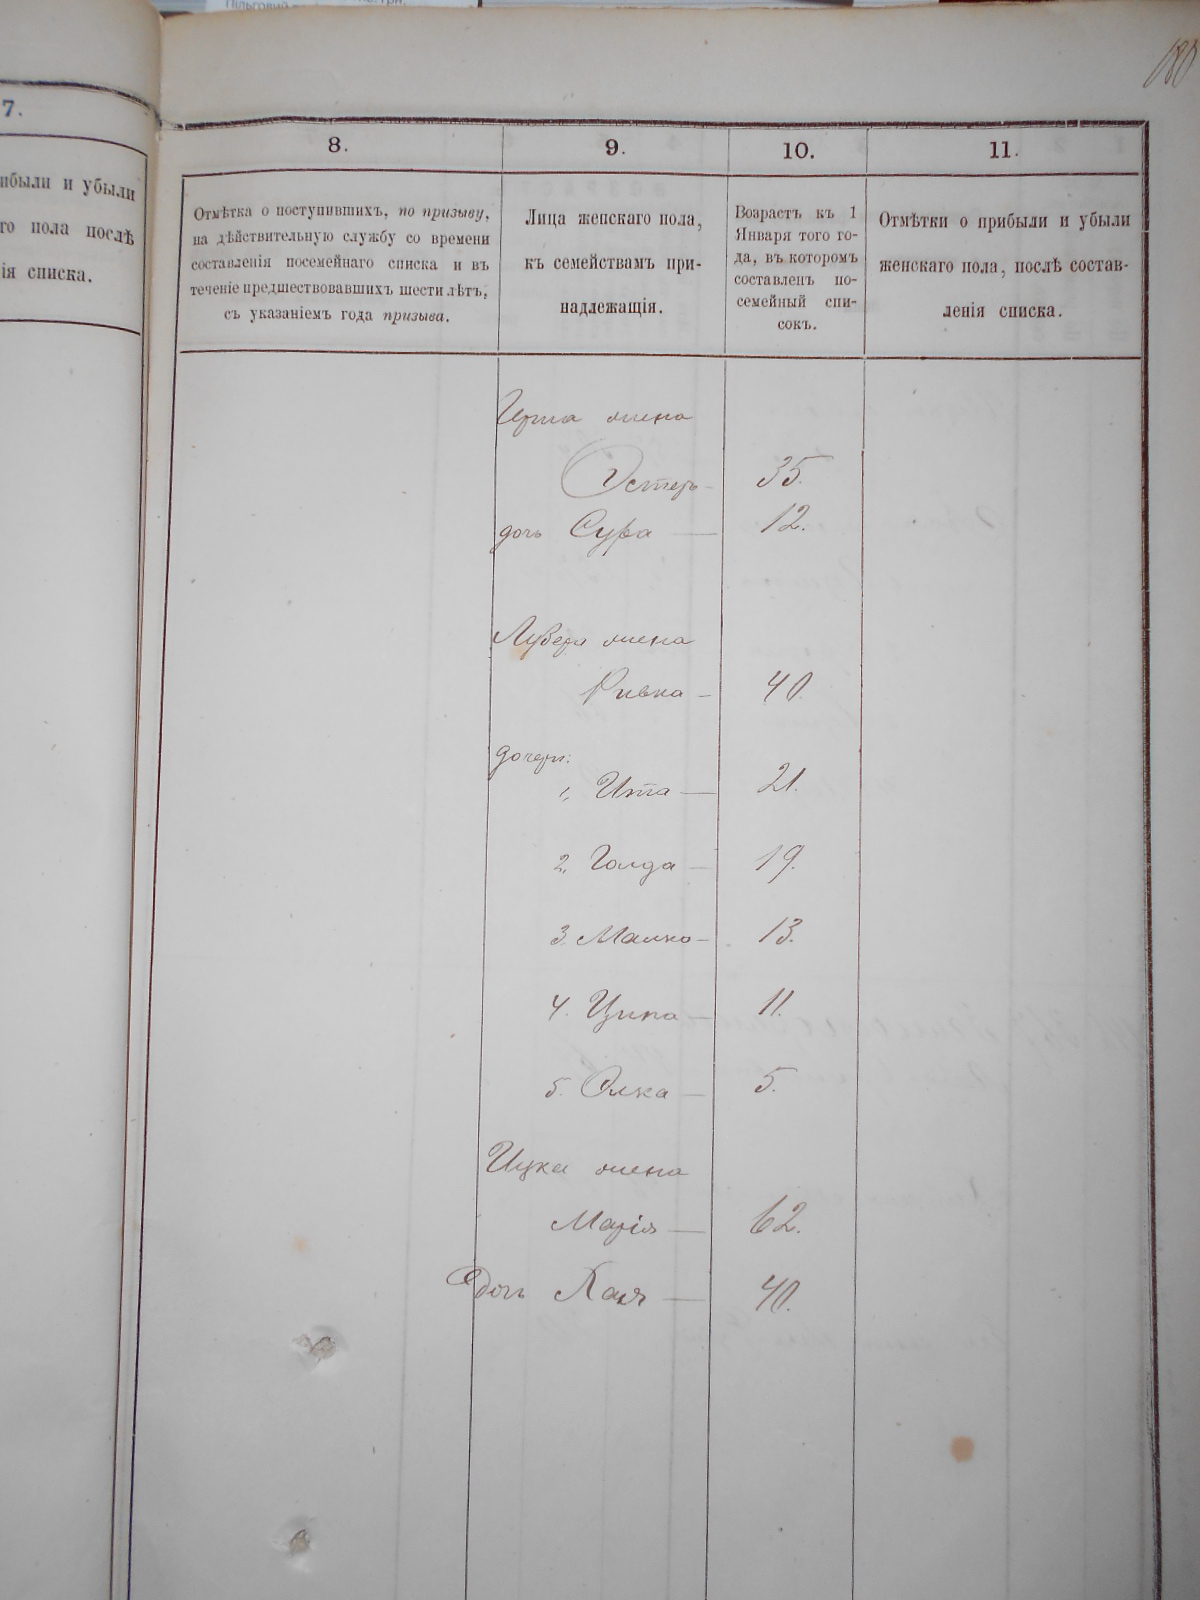 7.
ибыли и убыли
го пола послѣ
ія списка.
180
8.
9.
10.
11.
Отмѣтка о поступившихъ, по призыву,
на дѣйствительную службу со времени
составленія посемейнаго списка и въ
теченіе предшествовавшихъ шести лѣтъ,
съ указаніемъ года призыва.
Лица женскаго пола,
къ семействамъ при-
надлежащія.
Возрастъ къ 1
Января того го-
да, въ которомъ
составленъ по-
семейный спи-
сокъ.
Отмѣтки о прибыли и убыли
женскаго пола, послѣ состав-
ленія списка.
жена
Эстеръ 35.
дочь Сура 12.
Лузера жена
Ривка 40.
дочери:
1, Ита 21.
2, Голда 19.
3. Малка 13.
4. Ципа 11.
5. Элка 5.
Ицка жена
Марія 62.
дочь Хая 40.